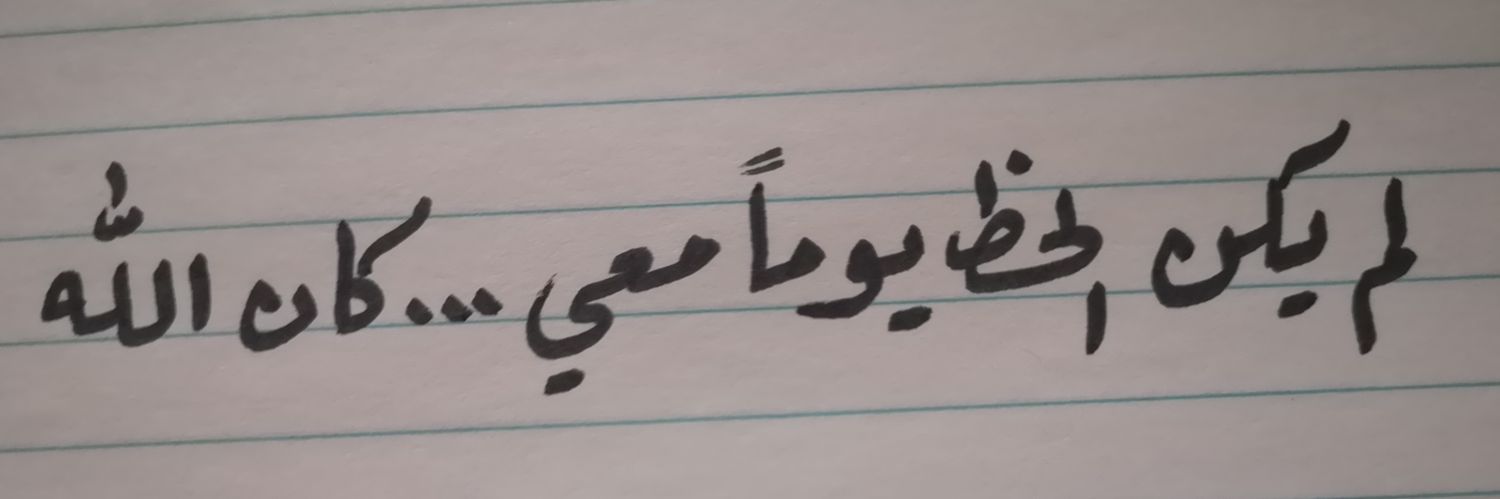 لم يكن الحظ يوماً معي ... كان اللّٰه